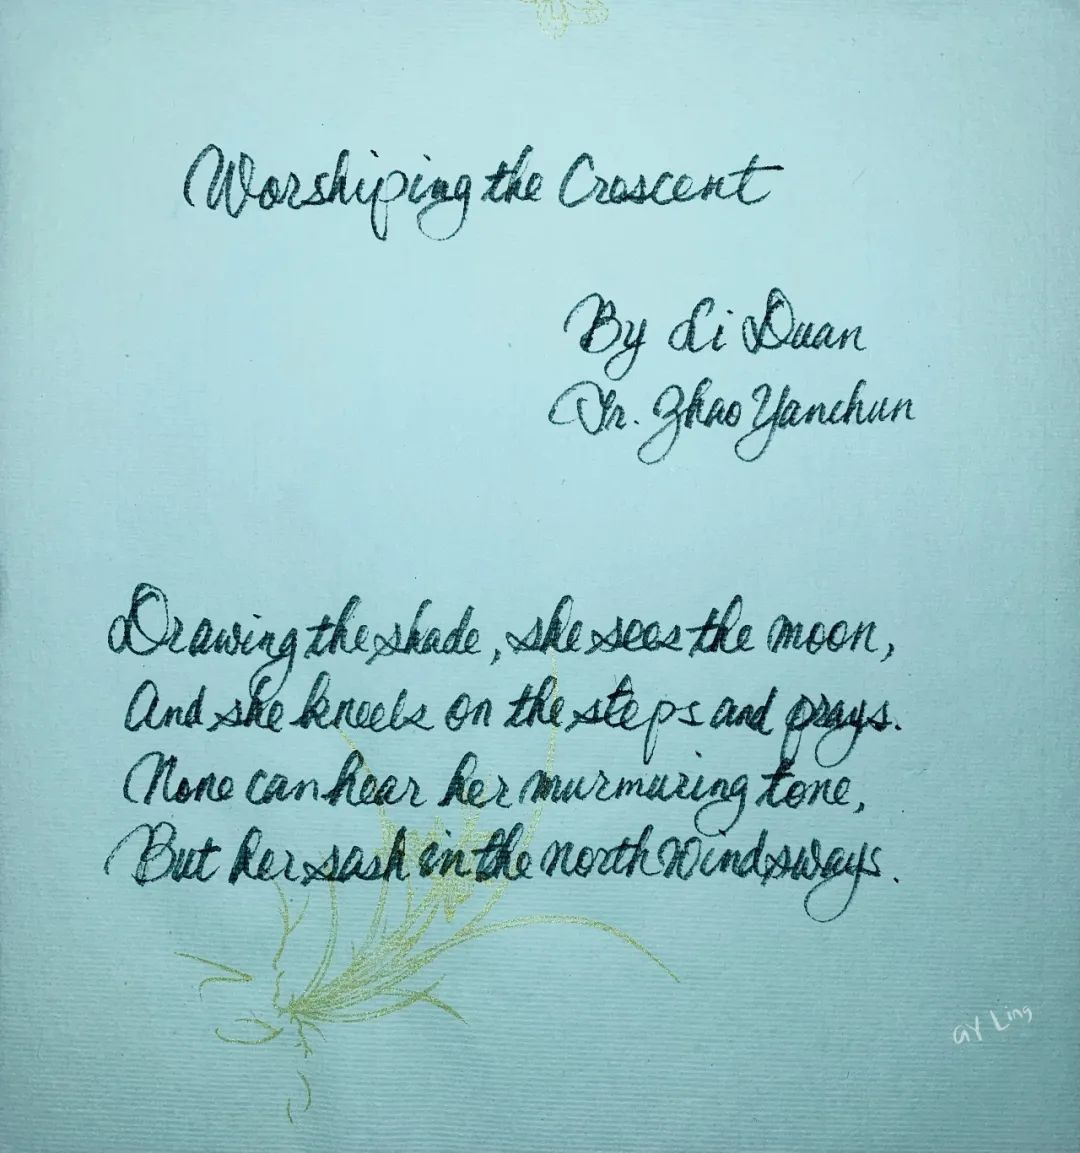 Worshiping the Crescent
By Li Duan
Tr. Zhao Yanchun
Drawing the shade, she sees the moon,
And she kneels on the steps and prays.
None can hear her murmuring tone,
But her sash in the north wind sways.
GY Ling